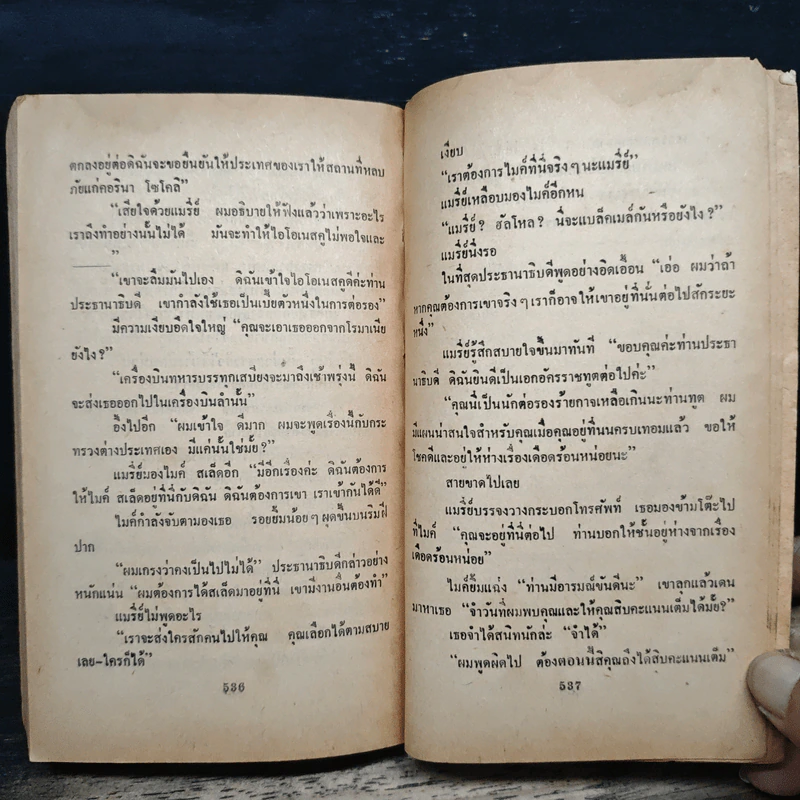 ตกลงอยู่ต่อดิฉันจะขอยืนยันให้ประเทศของเราให้สถานที่หลบ
ภัยแก่คอรินา โซโคลี”
“เสียใจด้วยแมรี่ย์ ผมอธิบายให้ฟังแล้วว่าเพราะอะไร
เราถึงทำอย่างนั้นไม่ได้ มันจะทำให้ไอโอเนสคูไม่พอใจและ
——”
“เขาจะลืมมันไปเอง ดิฉันเข้าใจไอโอเนสคูดีค่ะท่าน
ประธานาธิบดี เขากำลังใช้เธอเป็นเบี้ยตัวหนึ่งในการต่อรอง”
มีความเงียบอึดใจใหญ่ “คุณจะเอาเธอออกจากโรมาเนีย
ยังไง?”
“เครื่องบินทหารบรรทุกเสบียงจะมาถึงเช้าพรุ่งนี้ ดิฉัน
จะส่งเธอออกไปในเครื่องบินลำนั้น”
อึ้งไปอีก “ผมเข้าใจ ดีมาก ผมจะพูดเรื่องนี้กับกระ
ทรวงต่างประเทศเอง มีแค่นั้นใช่มั้ย?”
แมรี่ย์มองไมค์ สเล็ดอีก “มีอีกเรื่องค่ะ ดิฉันต้องการ
ให้ไมค์ สเล็ดอยู่ที่นี่กับดิฉัน ดิฉันต้องการเขา เราเข้ากันได้ดี”
ไมค์กำลังจับตามองเธอ รอยยิ้มน้อยๆ ผุดขึ้นบนริมฝี
ปาก
“ผมเกรงว่าคงเป็นไปไม่ได้” ประธานาธิบดีกล่าวอย่าง
หนักแน่น “ผมต้องการได้สเล็ดมาอยู่ที่นี่ เขามีงานอื่นต้องทำ”
แมรี่ย์ไม่พูดอะไร
“เราจะส่งใครสักคนไปให้คุณ คุณเลือกได้ตามสบาย
เลย–ใครก็ได้”
536
เงียบ
“เราต้องการไมค์ที่นี่จริงๆ นะแมรี่ย์”
แมรี่ย์เหลือบมองไมค์อีกหน
“แมรี่ย์? ฮัลโหล? นี่จะแบล็คเมล์กันหรือยังไง?”
แมรี่ย์นิ่งรอ
ในที่สุดประธานาธิบดีพูดอย่างอิดเอื้อน “เอ่อ ผมว่าถ้า
หากคุณต้องการเขาจริงๆ เราก็อาจให้เขาอยู่ที่นั่นต่อไปสักระยะ
หนึ่ง”
แมรี่ย์รู้สึกสบายใจขึ้นมาทันที “ขอบคุณค่ะท่านประธา
นาธิบดี ดิฉันยินดีเป็นเอกอัครราชทูตต่อไปค่ะ”
“คุณนี่เป็นนักต่อรองร้ายกาจเหลือเกินนะท่านทูต ผม
มีแผนน่าสนใจสำหรับคุณเมื่อคุณอยู่ที่นั่นครบเทอมแล้ว ขอให้
โชคดีและอยู่ให้ห่างเรื่องเดือดร้อนหน่อยนะ”
สายขาดไปเลย
แมรี่ย์บรรจงวางกระบอกโทรศัพท์ เธอมองข้ามโต๊ะไป
ที่ไมค์ “คุณจะอยู่ที่นี่ต่อไป ท่านบอกให้ชั้นอยู่ห่างจากเรื่อง
เดือดร้อนหน่อย”
ไมค์ยิ้มแฉ่ง “ท่านมีอารมณ์ขันดีนะ” เขาลุกแล้วเดิน
มาหาเธอ “จำวันที่ผมพบคุณและให้คุณสิบคะแนนเต็มได้มั้ย?”
เธอจำได้สนิทนักล่ะ “จำได้”
“ผมพูดผิดไป ต้องตอนนี้สิคุณถึงได้สิบคะแนนเต็ม”
537